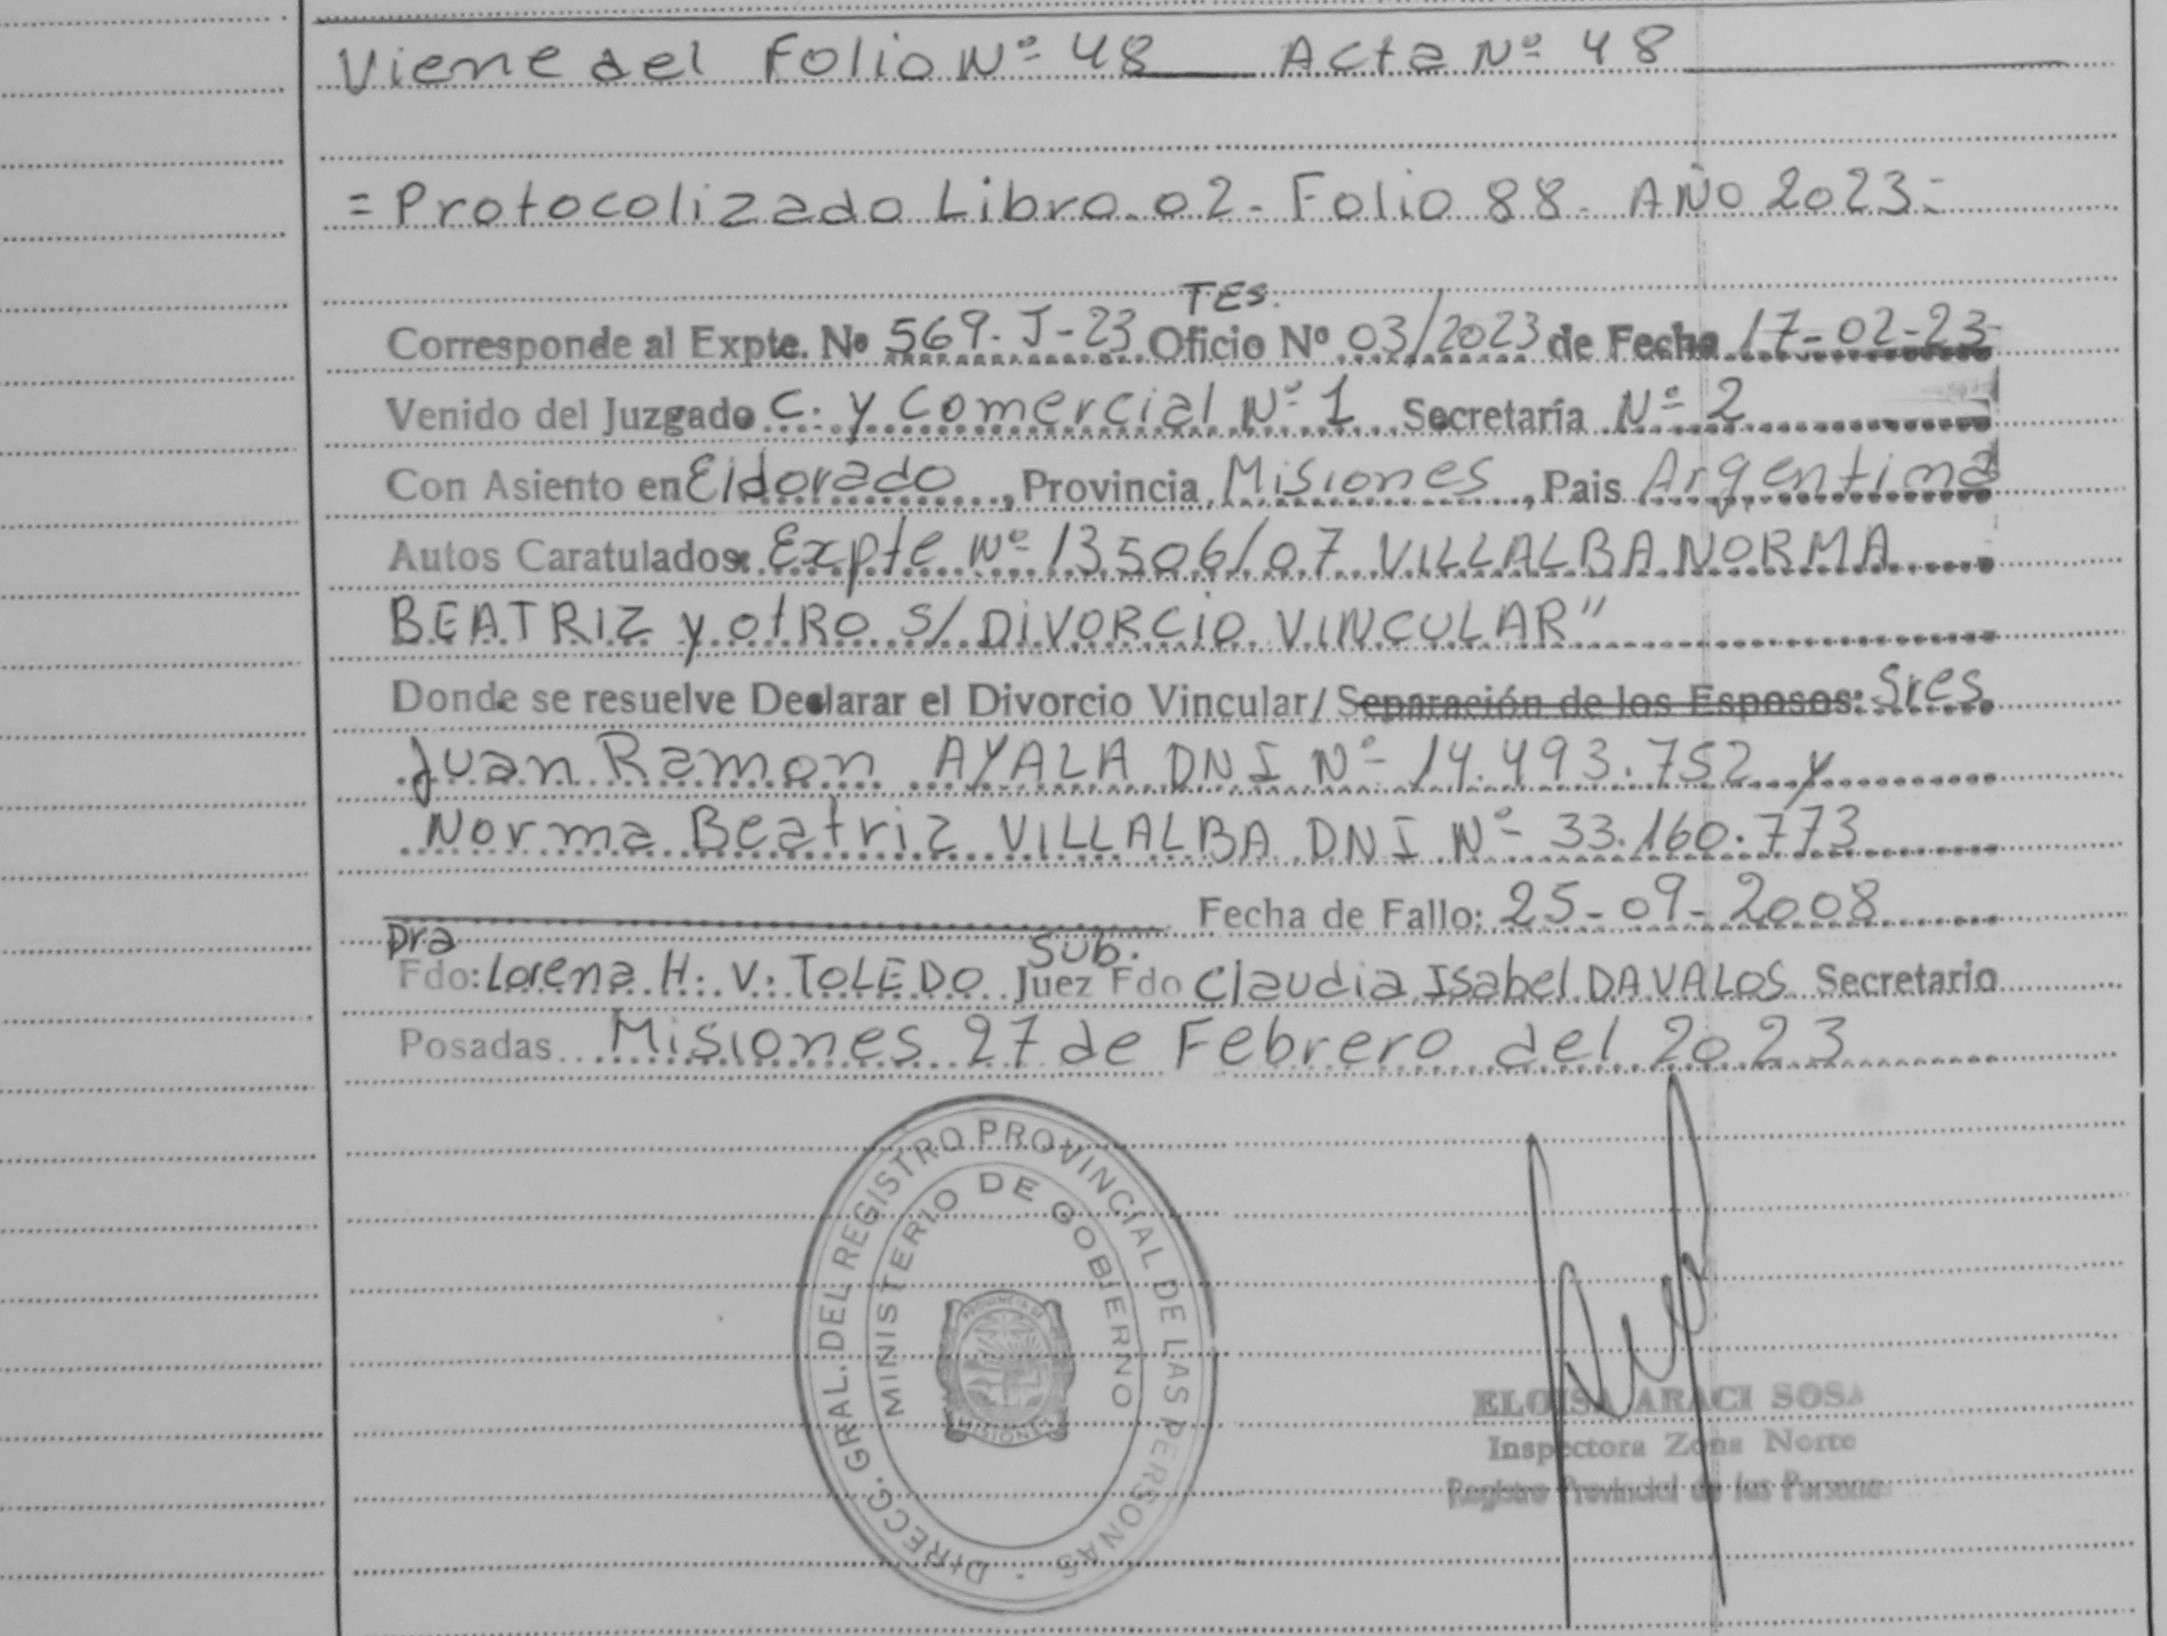 Viene del Folio Nº 48 Acta Nº 48
= Protocolizado Libro 02- Folio 88- AÑO 2023=
TES.
Corresponde al Expte. Nº 569-J-23 Oficio Nº 03/2023 de Fecha 17-02-23-
Venido del Juzgado C. y Comercial Nº 1 Secretaría Nº 2
Con Asiento en Eldorado, Provincia Misiones, Pais Argentina
Autos Caratulados: Expte Nº 13506/07 VILLALBA NORMA
BEATRIZ y otRo s/ DIVORCIO VINCULAR"
Donde se resuelve Declarar el Divorcio Vincular/ Separación de los Esposos: Sres
Juan Ramon AYALA DNI Nº 14.493.752 y
Norma Beatriz VILLALBA DNI Nº 33.160.773
Fecha de Fallo: 25-09-2008
Dra Sub.
Fdo: Lorena H. V. TOLEDO Juez Fdo Claudia Isabel DAVALOS Secretario
Posadas Misiones 27 de Febrero del 2023
DIRECC. GRAL. DEL REGISTRO PROVINCIAL DE LAS PERSONAS
MINISTERIO DE GOBIERNO
PROVINCIA DE
MISIONES
ELOISA ARACI SOSA
Inspectora Zona Norte
Registro Provincial de las Personas